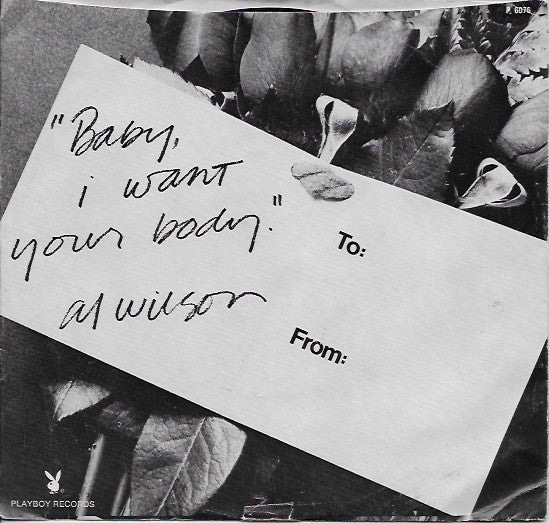 P. 6076
"Baby,
i want
your body."
al wilson
To:
From:
PLAYBOY RECORDS